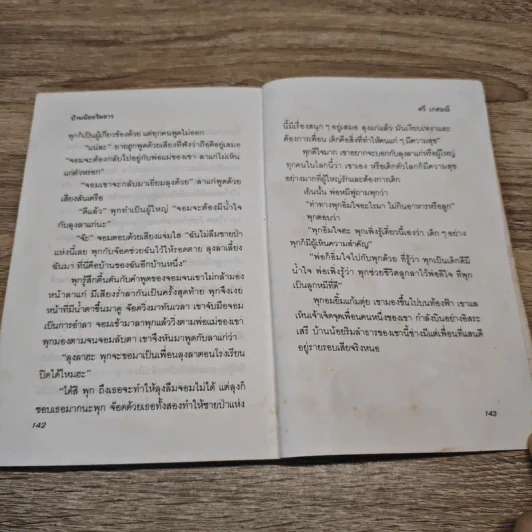 บ้านน้อยริมธาร
พุกก็เป็นผู้เกี่ยวข้องด้วย แต่ทุกคนพูดไม่ออก
"แน่ละ" ยายลูกพูดด้วยเสียงที่ฟังว่าถือดีอยู่เสมอ
"จอมจะต้องกลับไปอยู่กับพ่อแม่ของเขา ลาแก่ไม่เห็น
แก่ตัวหรอก"
"จอมเขาจะกลับมาเยี่ยมลุงด้วย" ลาแก่พูดด้วย
เสียงสั่นเครือ
"ดีแล้ว" พุกทำเป็นผู้ใหญ่ "จอมจะต้องมีน้ำใจ
กับลุงลาแก่นะ"
"จ๊ะ" จอมตอบด้วยเสียงแจ่มใส "ฉันไม่ลืมชายป่า
แห่งนี้เลย พุกกับจ๊อดช่วยฉันไว้ให้รอดตาย ลุงลาเลี้ยง
ฉันมา ที่นี่คือบ้านของฉันอีกบ้านหนึ่ง"
พุกรู้สึกตื้นตันกับคำพูดของจอมจนเขาไม่กล้ามอง
หน้าลาแก่ มีเสียงร่ำลากันเป็นครั้งสุดท้าย พุกจึงเงย
หน้าที่มีน้ำตาขึ้นมาดู จ๊อดวิ่งมาทันเวลา เขาจับมือจอม
เป็นการอำลา จอมเข้ามาลาพุกแล้ววิ่งตามพ่อแม่ของเขา
พุกมองตามจนจอมลับตา เขาจึงหันมาพูดกับลาแก่ว่า
"ลุงลาฮะ พุกจะขอมาเป็นเพื่อนลุงลาตอนโรงเรียน
ปิดได้ไหมฮะ"
"ได้สิ พุก ถึงเธอจะทำให้ลุงลืมจอมไม่ได้ แต่ลุงก็
ชอบเธอมากนะพุก จ๊อดด้วยเธอทั้งสองทำให้ชายป่าแห่ง
142
ศรี เกศมณี
นี้มีเรื่องสนุก ๆ อยู่เสมอ ลุงแก่แล้ว มันเงียบเหงาและ
ต้องการเพื่อน เด็กคือสิ่งที่ทำให้คนแก่ ๆ มีความสุข"
พุกดีใจมาก เขาอยากจะบอกกับลุงลาแก่หรือผู้ใหญ่
ทุกคนในโลกนี้ว่า เขาเอง หรือเด็กทั่วโลกก็มีความสุข
อย่างมากที่ผู้ใหญ่รักและต้องการเด็ก
เย็นนั้น พ่อหมีฟูถามพุกว่า
"ท่าทางพุกอิ่มใจอะไรมา ไม่กินอาหารหรือลูก"
พุกตอบว่า
"พุกอิ่มใจฮะ พุกเพิ่งรู้เดี๋ยวนี้เองว่า เด็ก ๆ อย่าง
พุกก็มีผู้เห็นความสำคัญ"
"พ่อก็อิ่มใจไปกับพุกด้วย ที่รู้ว่า พุกเป็นเด็กดีมี
น้ำใจ พ่อเพิ่งรู้ว่า พุกช่วยชีวิตลูกลาไว้พ่อดีใจ ที่พุก
เป็นลูกหมีที่ดี"
พุกอมยิ้มแก้มตุ่ย เขามองขึ้นไปบนท้องฟ้า เขาแล
เห็นเจ้าเจ็ดจุดเพื่อนคนหนึ่งของเขา กำลังบินอย่างอิสระ
เสรี บ้านน้อยริมลำธารของเขานี้ช่างมีแต่เพื่อนที่แสนดี
อยู่รายรอบเสียจริงหนอ
143